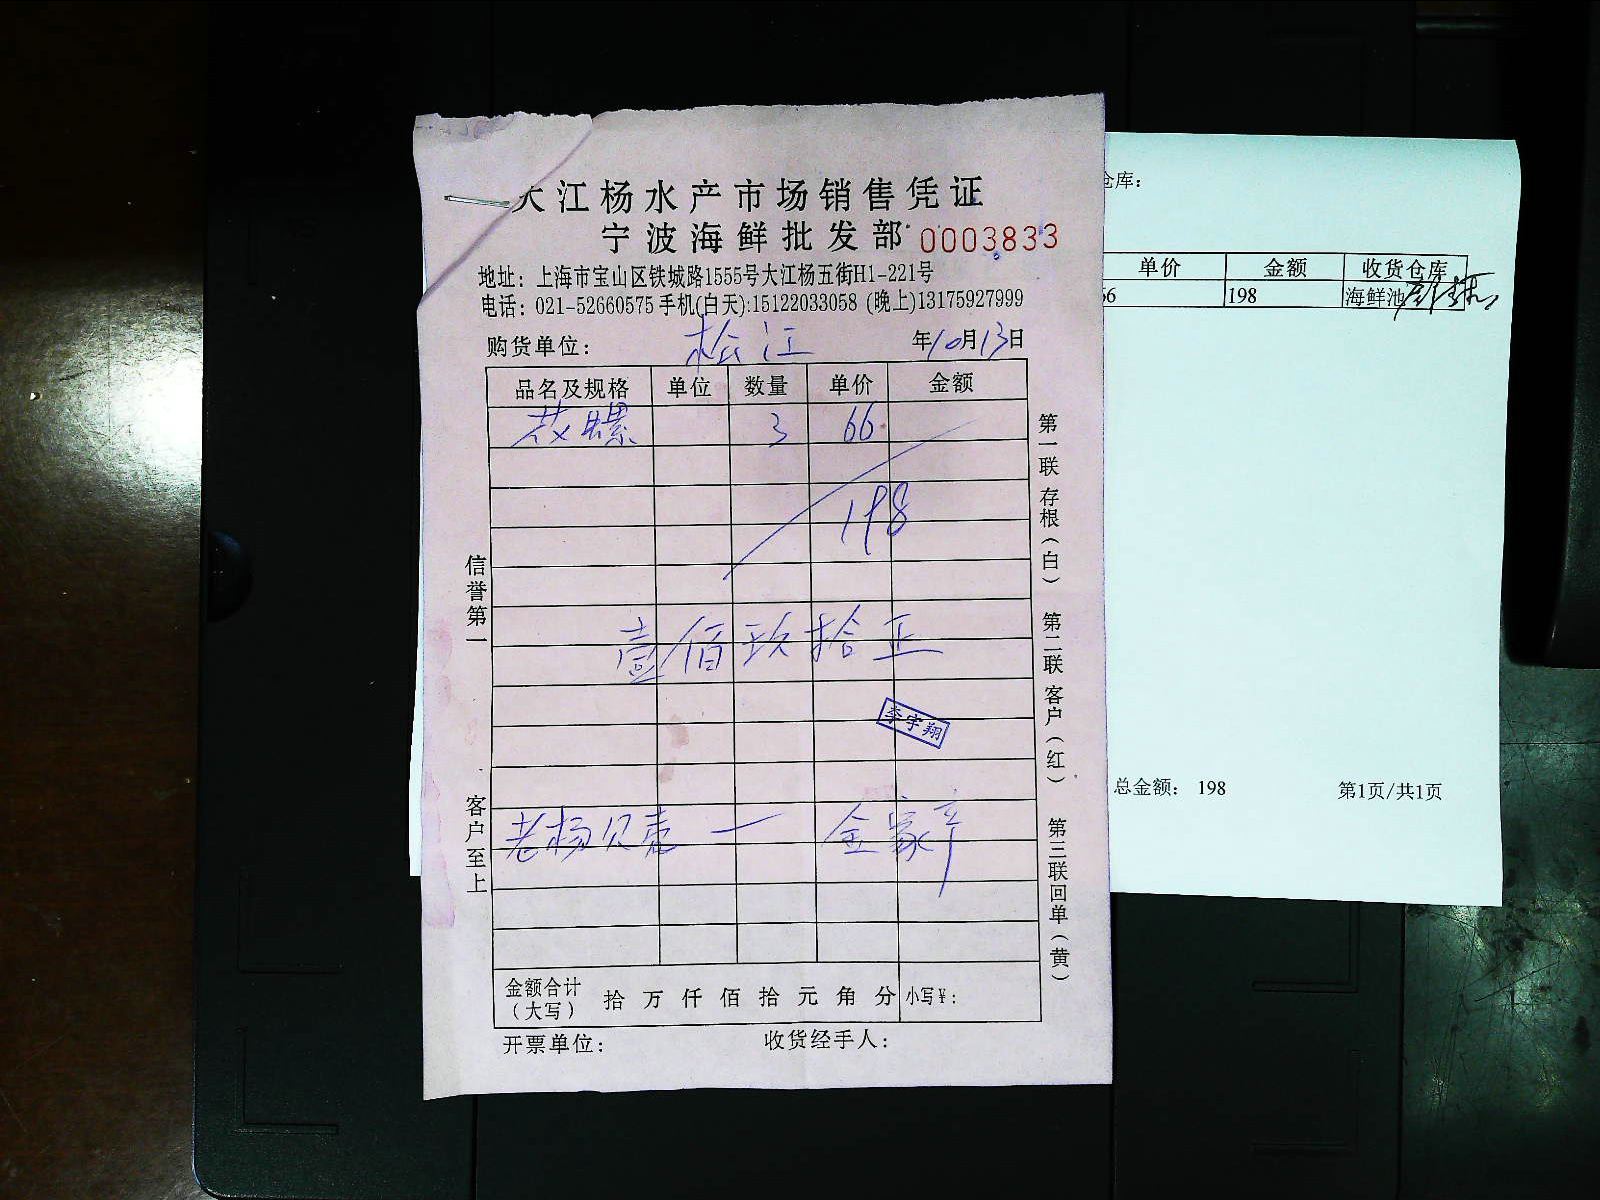 大江杨水产市场销售凭证
宁波海鲜批发部 0003833
地址：上海市宝山区铁城路1555号大江杨五街H1-221号
电话：021-52660575 手机(白天):15122033058 (晚上)13175927999
购货单位： 松江 年10月13日
品名及规格 单位 数量 单价 金额
花螺 3 66
198
壹佰玖拾正
李宇翔
老杨贝壳 一
金额合计（大写） 拾万仟佰拾元角分 小写￥：
开票单位： 收货经手人：
信誉第一
客户至上
第一联 存根（白）
第二联 客户（红）
第三联 回单（黄）
仓库：
单价 金额 收货仓库
66 198 海鲜池
总金额： 198 第1页/共1页